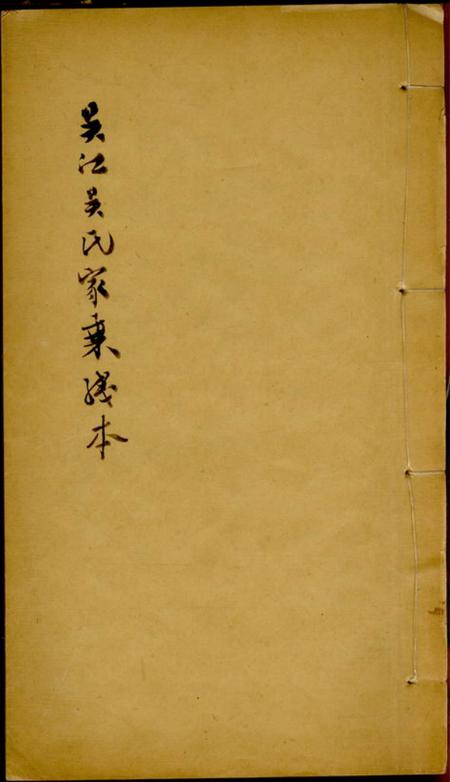 吴江吴氏家乘残本